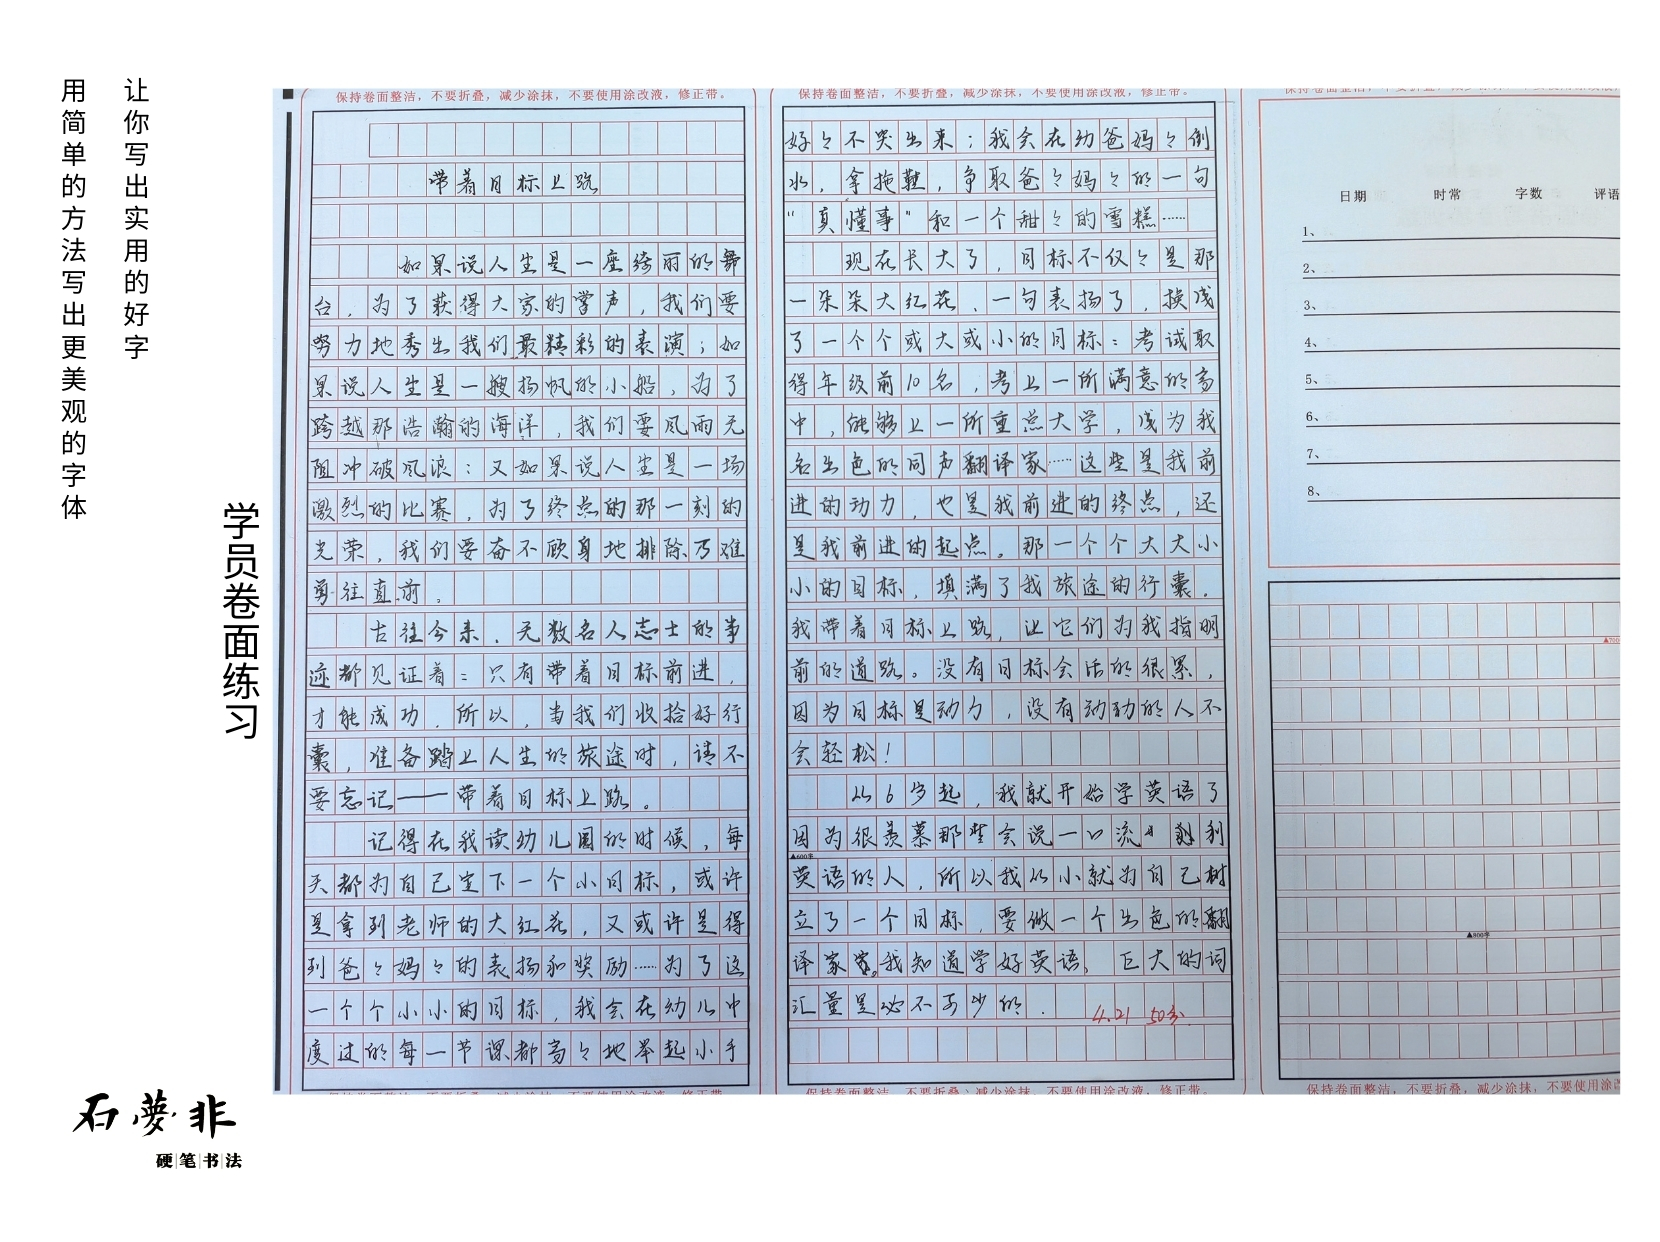 让你写出实用的好字
用简单的方法写出更美观的字体
学员卷面练习
石夢非
硬笔书法
保持卷面整洁，不要折叠，减少涂抹，不要使用涂改液，修正带。
带着目标上路
如果说人生是一座绮丽的舞
台，为了获得大家的掌声，我们要
努力地秀出我们最精彩的表演；如
果说人生是一艘扬帆的小船，为了
跨越那浩瀚的海洋，我们要风雨无
阻冲破风浪；又如果说人生是一场
激烈的比赛，为了终点的那一刻的
光荣，我们要奋不顾身地排除万难
勇往直前。
古往今来，无数名人志士的事
迹都见证着：只有带着目标前进，
才能成功。所以，当我们收拾好行
囊，准备踏上人生的旅途时，请不
要忘记——带着目标上路。
记得在我读幼儿园的时候，每
天都为自己定下一个小目标，或许
是拿到老师的大红花，又或许是得
到爸々妈々的表扬和奖励……为了这
一个个小小的目标，我会在幼儿中
度过的每一节课都高々地举起小手
保持卷面整洁，不要折叠；减少涂抹，不要使用涂改液，修正带
保持卷面整洁，不要折叠，减少涂抹，不要使用涂改液，修正带。
好々不哭出来；我会在幼爸妈々倒
水，拿拖鞋，争取爸々妈々的一句
“真懂事”和一个甜々的雪糕……
现在长大了，目标不仅々是那
一朵朵大红花、一句表扬了，换成
了一个个或大或小的目标：考试取
得年级前10名，考上一所满意的高
中，能够上一所重点大学，成为我
名出色的同声翻译家……这些是我前
进的动力，也是我前进的终点，还
是我前进的起点。那一个个大大小
小的目标，填满了我旅途的行囊。
我带着目标上路，让它们为我指明
前的道路。没有目标会活的很累，
因为目标是动力，没有动劝的人不
会轻松！
从6岁起，我就开始学英语了
因为很羡慕那些会说一口流利
英语的人，所以我从小就为自己树
立了一个目标，要做一个出色的翻
译家家。我知道学好英语，巨大的词
汇量是必不可少的.
4.21 50分
▲600字
保持卷面整洁，不要折叠；减少涂抹，不要使用涂改液，修正带。
日期 时常 字数 评语
1、
2、
3、
4、
5、
6、
7、
8、
▲800字
保持卷面整洁，不要折叠，减少涂抹，不要使用涂改